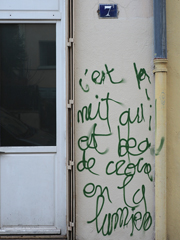 7
c'est la
nuit qu'i
est beau
de croire
en la
lumière